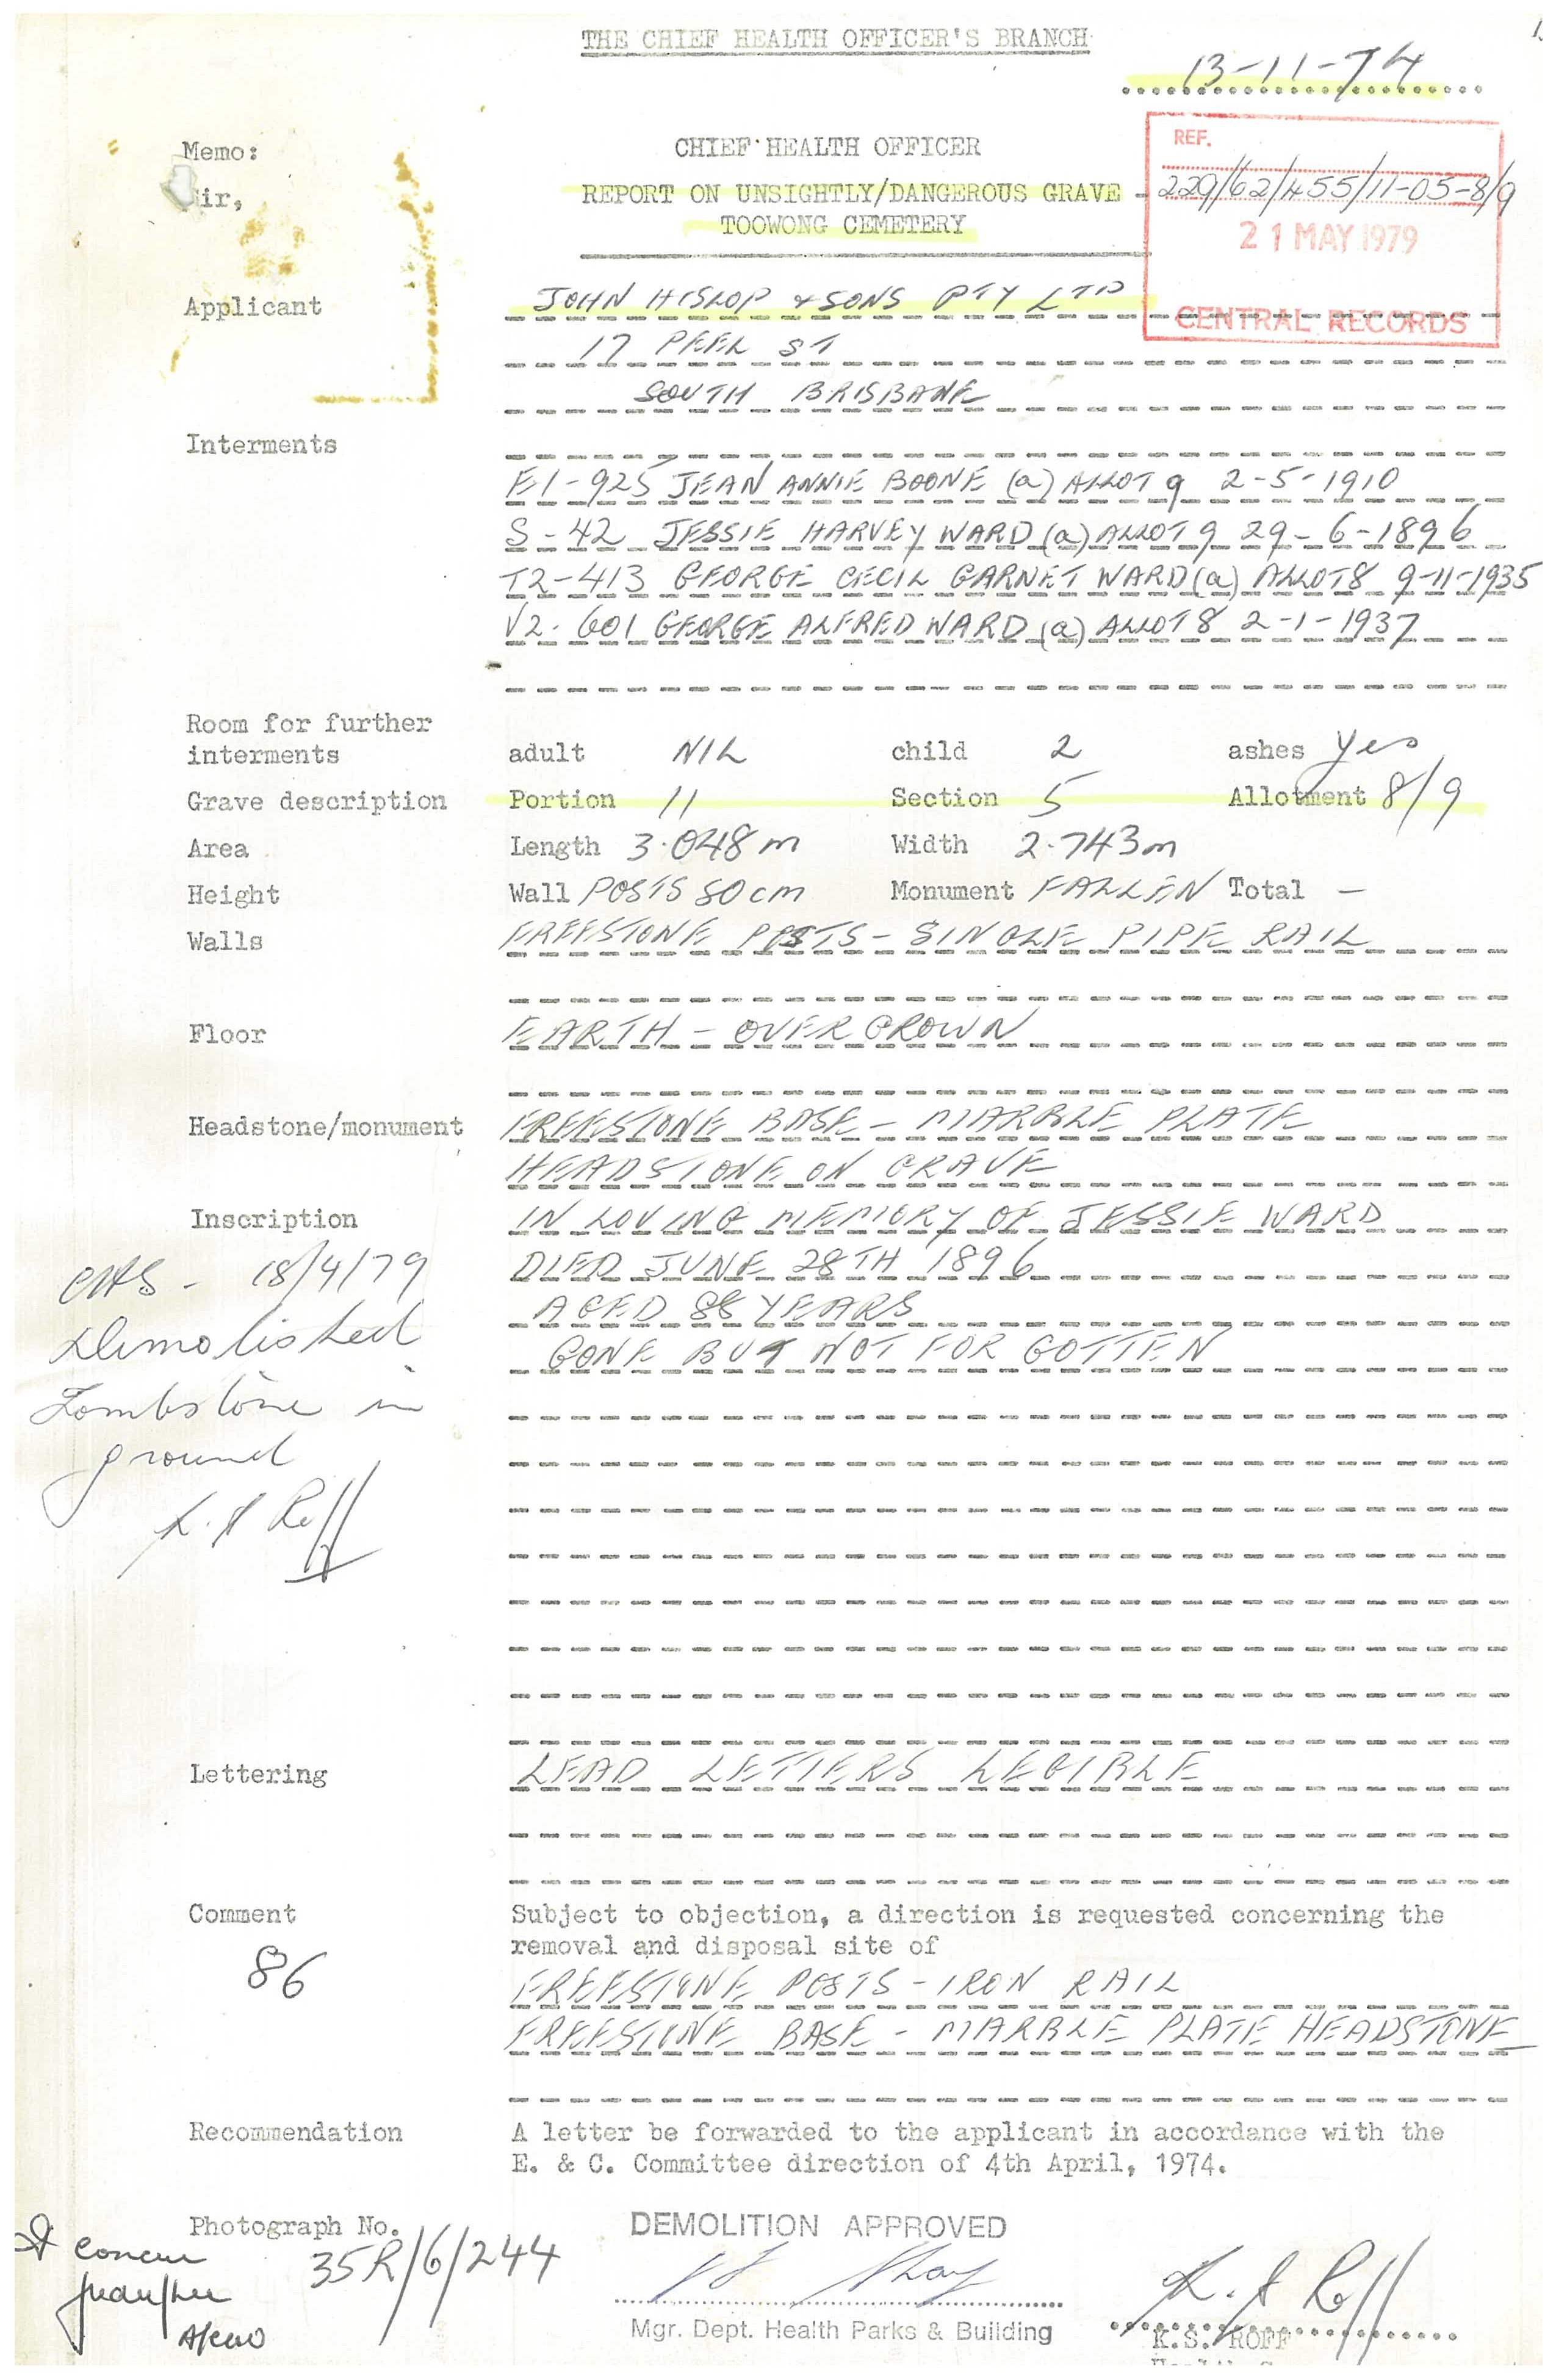 THE CHIEF HEALTH OFFICER'S BRANCH
13-11-74
Memo:
CHIEF HEALTH OFFICER
REF.
ir,
REPORT ON UNSIGHTLY/DANGEROUS GRAVE -
229/62/455/11-05-8/9
TOOWONG CEMETERY
21 MAY 1979
CENTRAL RECORDS
Applicant JOHN HISLOP & SONS PTY LTD
17 PEEL ST
SOUTH BRISBANE
Interments
E1-925 JEAN ANNIE BOONE (a) ALLOT 9 2-5-1910
S-42 JESSIE HARVEY WARD (a) ALLOT 9 29-6-1896
T2-413 GEORGE CECIL GARNET WARD (a) ALLOT 8 9-11-1935
V2-601 GEORGE ALFRED WARD (a) ALLOT 8 2-1-1937
Room for further
interments adult NIL child 2 ashes yes
Grave description Portion 11 Section 5 Allotment 8/9
Area Length 3.048m Width 2.743m
Height Wall POSTS 80cm Monument FALLEN Total -
Walls FREESTONE POSTS - SINGLE PIPE RAIL
Floor EARTH - OVERGROWN
Headstone/monument FREESTONE BASE - MARBLE PLATE
HEADSTONE ON GRAVE
Inscription IN LOVING MEMORY OF JESSIE WARD
DIED JUNE 28TH 1896
AGED 88 YEARS
GONE BUT NOT FORGOTTEN
18/4/79
Demolished
Tombstone in
ground
K. S Roff
Lettering LEAD LETTERS LEGIBLE
Comment Subject to objection, a direction is requested concerning the
removal and disposal site of
86
FREESTONE POSTS - IRON RAIL
FREESTONE BASE - MARBLE PLATE HEADSTONE
Recommendation A letter be forwarded to the applicant in accordance with the
E. & C. Committee direction of 4th April, 1974.
Photograph No. 35R/6/244
DEMOLITION APPROVED
I concur
Mgr. Dept. Health Parks & Building
K. S Roff
K.S. ROFF